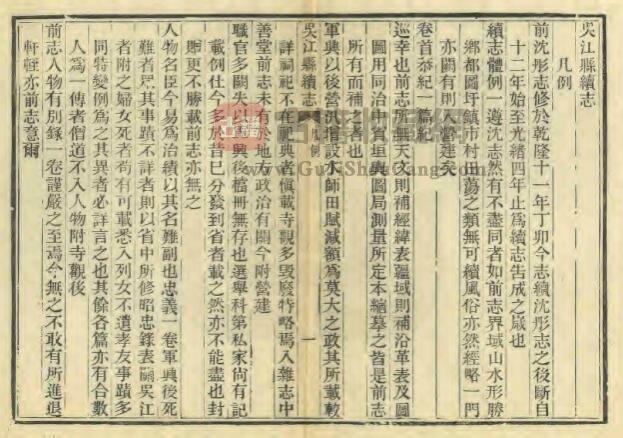 吳江縣續志
凡例
前沈彤志修於乾隆十一年丁卯今志續沈彤志之後斷自
十二年始至光緒四年止為續志告成之歲也
續志體例一遵沈志然有不盡同者如前志界域山水形勝
鄉都圖圩鎮市村田蕩之類無可續風俗亦然經略一門
亦闕有則入營建矣
卷首恭紀一篇紀
巡幸也前志所無天文則補經緯表疆域則補沿革表及圖
圖用同治中省垣輿圖局測量所定本縮摹之皆是前志
所有而補之者也
軍興以後營汛指設水師田賦減額為莫大之政其所載較
吳江縣續志 凡例 一
詳祠祀不在祀典者慎載寺觀多毀廢特略焉入雜志中
善堂前志未有於地方政治有關今附營建
職官多闕失以軍興後檔冊無存也選舉科第私家尚有記
載例仕今多於昔巳分發到省者載之然亦不能盡也封
贈更不勝載前志亦無之
人物名臣今易為治績以其名難副也忠義一卷軍興後死
難者眾其事蹟不詳者則以省中所修昭忠錄表吳江
者附之婦女死者苟有可載悉入列女不遺孝友事蹟多
同特變例為之其異者必詳言之也其餘各篇亦有合數
人為一傳者僧道不入人物附寺觀後
前志人物有別錄一卷謹嚴之至焉今無之不敢有所進退
軒輊亦前志意爾
www.GuJiShuCang.com